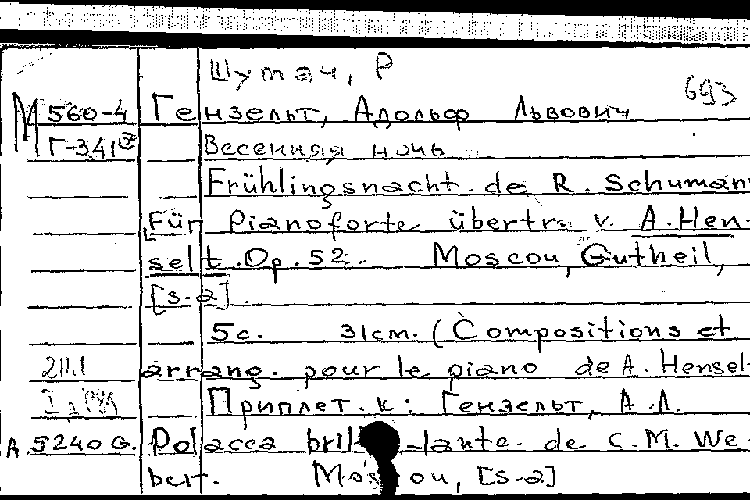 Шуман, Р
693
М 560-4 Гензельт, Адольф Львович
Г-341 Весенняя ночь
Frühlingsnacht de R. Schuman
Für Pianoforte übertr. v. A. Hen-
selt. Op. 52. Moscou, Gutheil,
[s-a]
5c. 31cm. (Compositions et
211.1 arrang. pour le piano de A. Hensel
Приплет. к: Гензельт, А.Л.
A 5240 G. Polacca brillante de C. M. We-
ber. Moscou, [s-a]